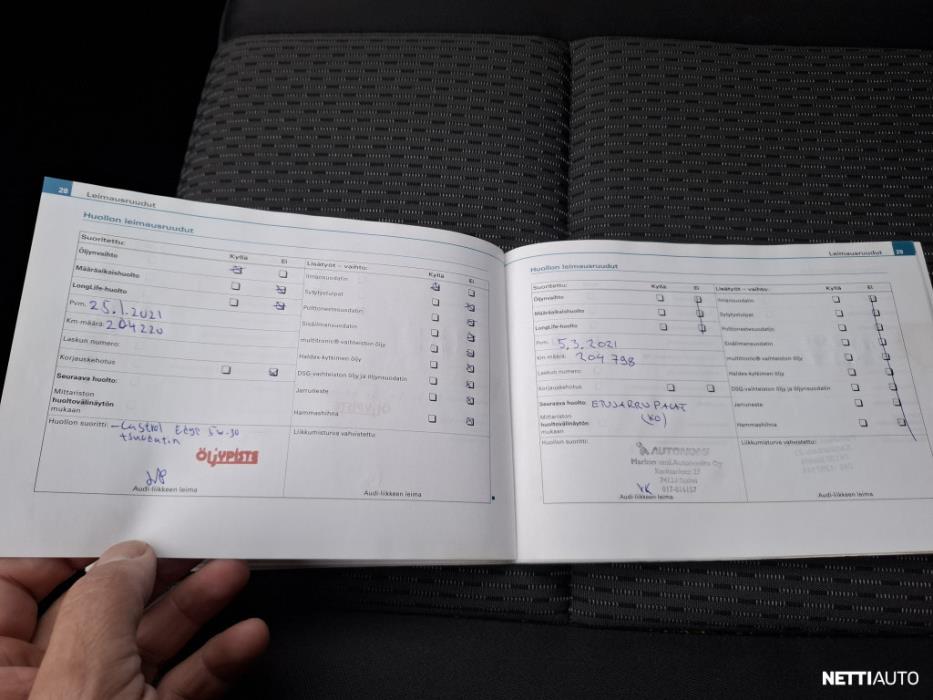 28 Leimausruudut
Huollon leimausruudut
Suoritettu:
Kyllä Ei
Öljynvaihto
Määräaikaishuolto
LongLife-huolto
Pvm: 25.1.2021
Km-määrä: 204220
Laskun numero:
Korjauskehotus
Seuraava huolto:
Mittariston
huoltovälinäytön
mukaan
Huollon suoritti: - Castrol Edge 5w-30
+suodatin
ÖLJYPISTE
Audi-liikkeen leima
Lisätyöt – vaihto:
Kyllä Ei
Ilmansuodatin
Sytytystulpat
Polttoainesuodatin
Sisäilmansuodatin
multitronic®-vaihteiston öljy
Haldex-kytkimen öljy
DSG-vaihteiston öljy ja öljynsuodatin
Jarruneste
Hammashihna
Liikkumisturva vahvistettu:
Audi-liikkeen leima
Leimausruudut 29
Huollon leimausruudut
Suoritettu:
Kyllä Ei
Öljynvaihto
Määräaikaishuolto
LongLife-huolto
Pvm: 5.3.2021
Km-määrä: 204798
Laskun numero:
Korjauskehotus
Seuraava huolto: ETUJARRUPALAT
(KO)
Mittariston
huoltovälinäytön
mukaan
Huollon suoritti:
AUTONOMSI
Audi-liikkeen leima
Lisätyöt – vaihto:
Kyllä Ei
Ilmansuodatin
Sytytystulpat
Polttoainesuodatin
Sisäilmansuodatin
multitronic®-vaihteiston öljy
Haldex-kytkimen öljy
DSG-vaihteiston öljy ja öljynsuodatin
Jarruneste
Hammashihna
Liikkumisturva vahvistettu:
Audi-liikkeen leima
NETTIAUTO